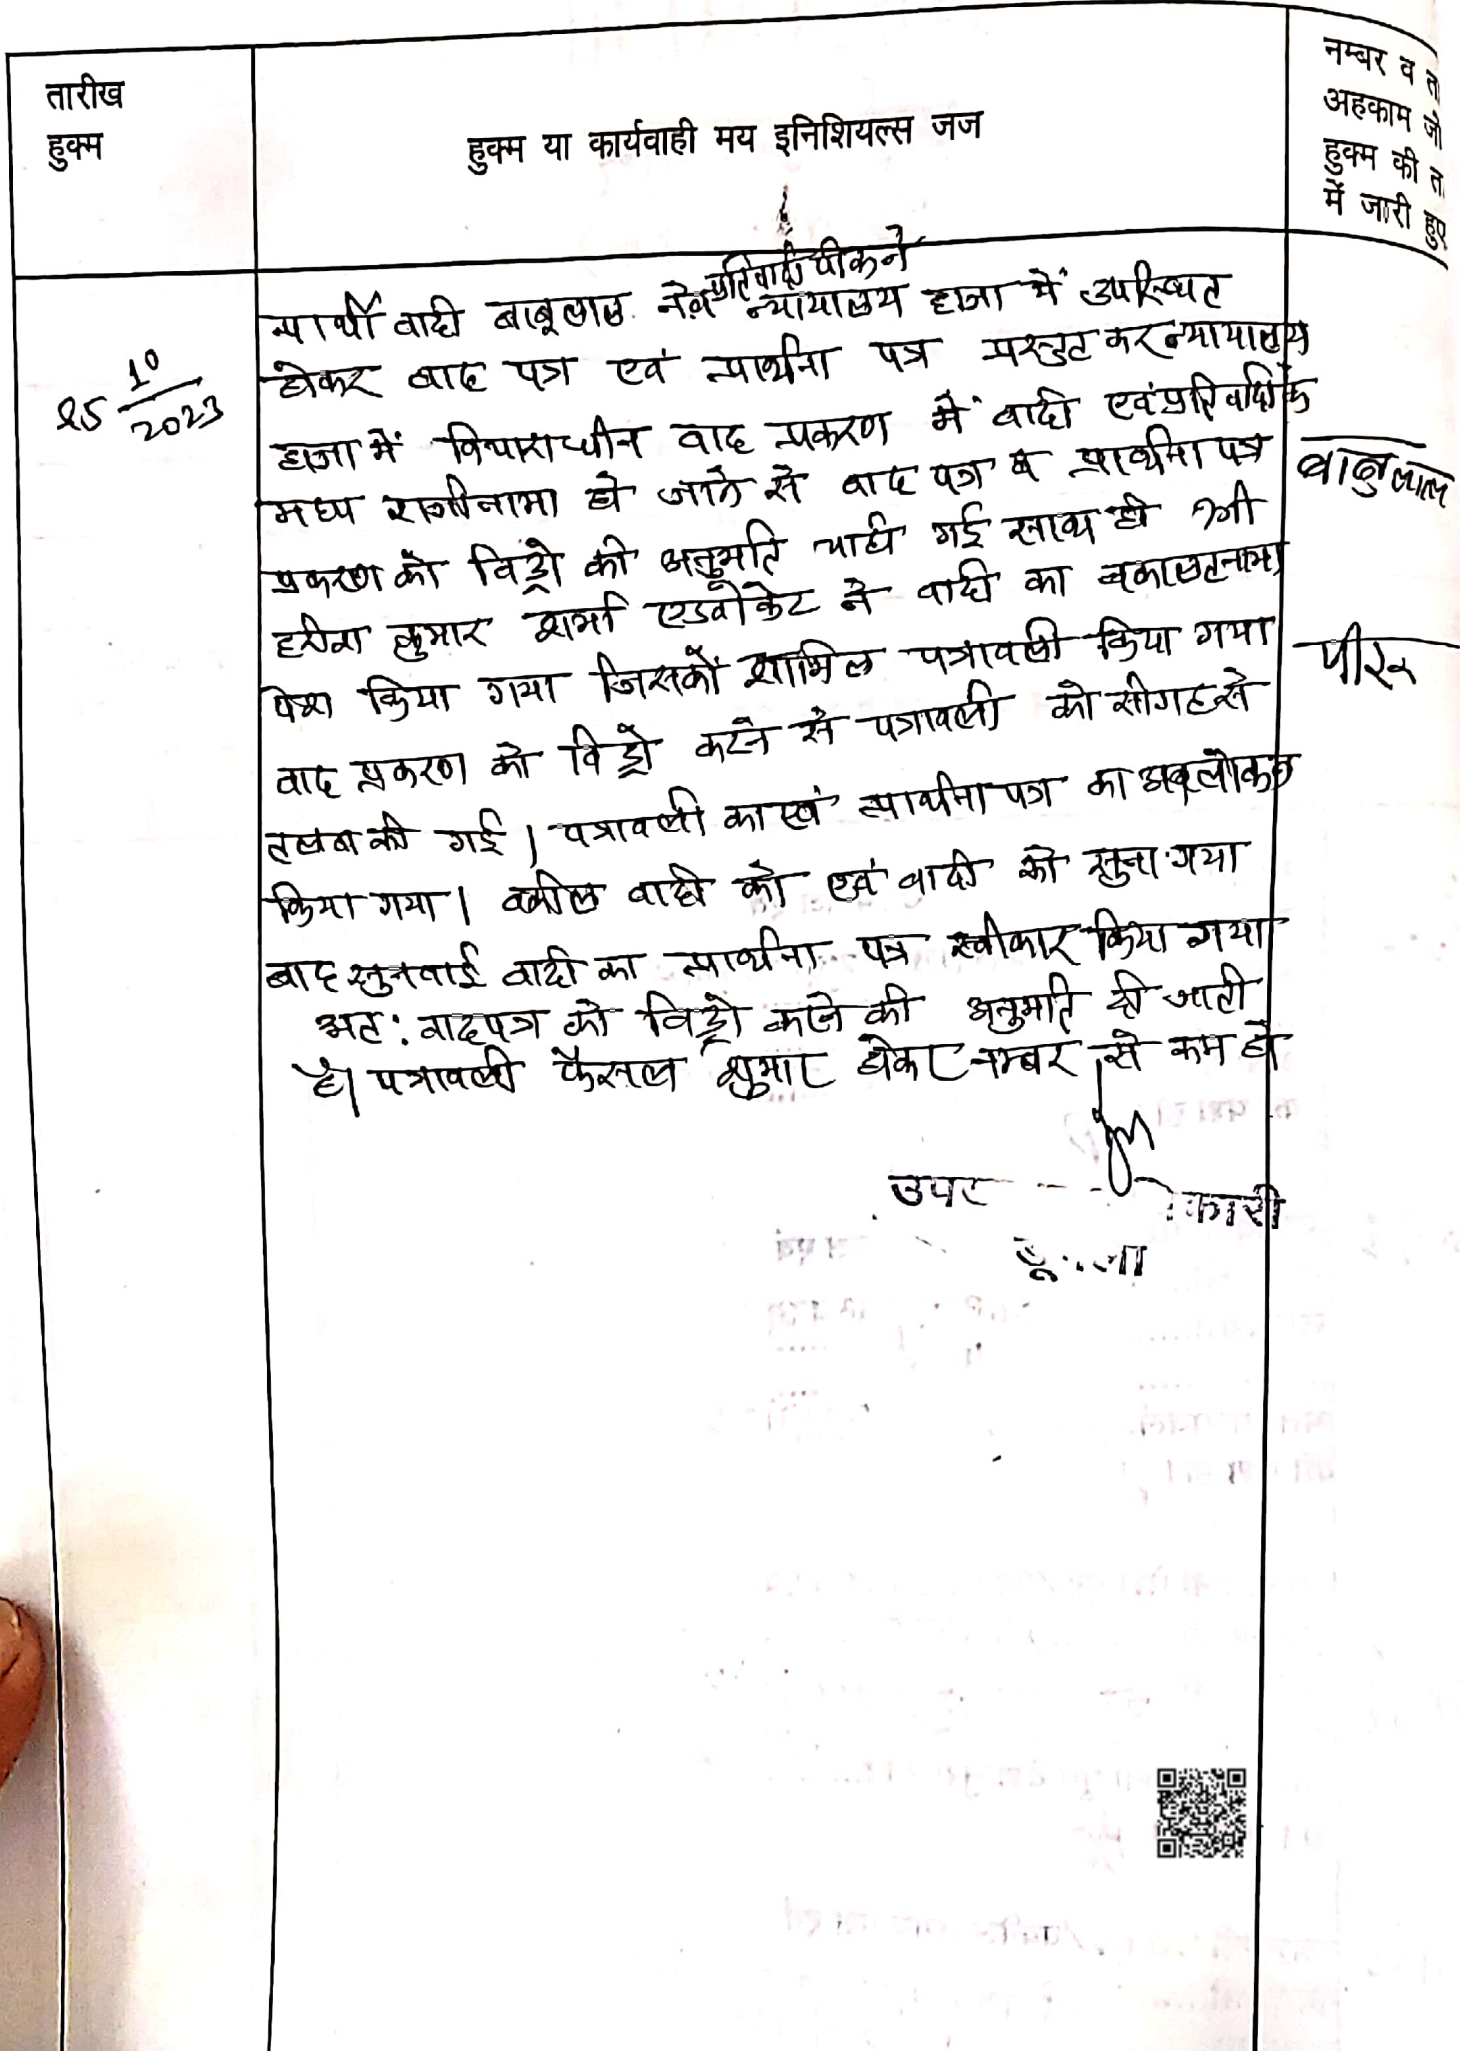 तारीख
हुक्म
हुक्म या कार्यवाही मय इनिशियल्स जज
नम्बर व ता
अहकाम जो
हुक्म की ता
में जारी हुए
25 10/2023
प्रतिवादी पीरू ने
प्रार्थी वादी बाबूलाल ने व न्यायालय हाजा में उपस्थित
होकर वाद पत्र एवं प्रार्थना पत्र प्रस्तुत कर न्यायालय
हाजा में विचाराधीन वाद प्रकरण में वादी एवं प्रतिवादी के
मध्य राजीनामा हो जाने से वाद पत्र व प्रार्थना पत्र
प्रकरण को विड्रो की अनुमति चाही गई साथ ही श्री
कुमार शर्मा एडवोकेट ने वादी का वकालतनामा
पेश किया गया जिसको शामिल पत्रावली किया गया
वाद प्रकरण को विड्रो करने से पत्रावली को सीगह से
तलब की गई। पत्रावली का एवं प्रार्थना पत्र का अवलोकन
किया गया। वकील वादी को एवं वादी को सुना गया
बाद सुनवाई वादी का प्रार्थना पत्र स्वीकार किया गया
अत: वादपत्र को विड्रो करने की अनुमति दी जाती
है। पत्रावली फैसल शुमार होकर नम्बर से कम हो
बाबुलाल
पीरू